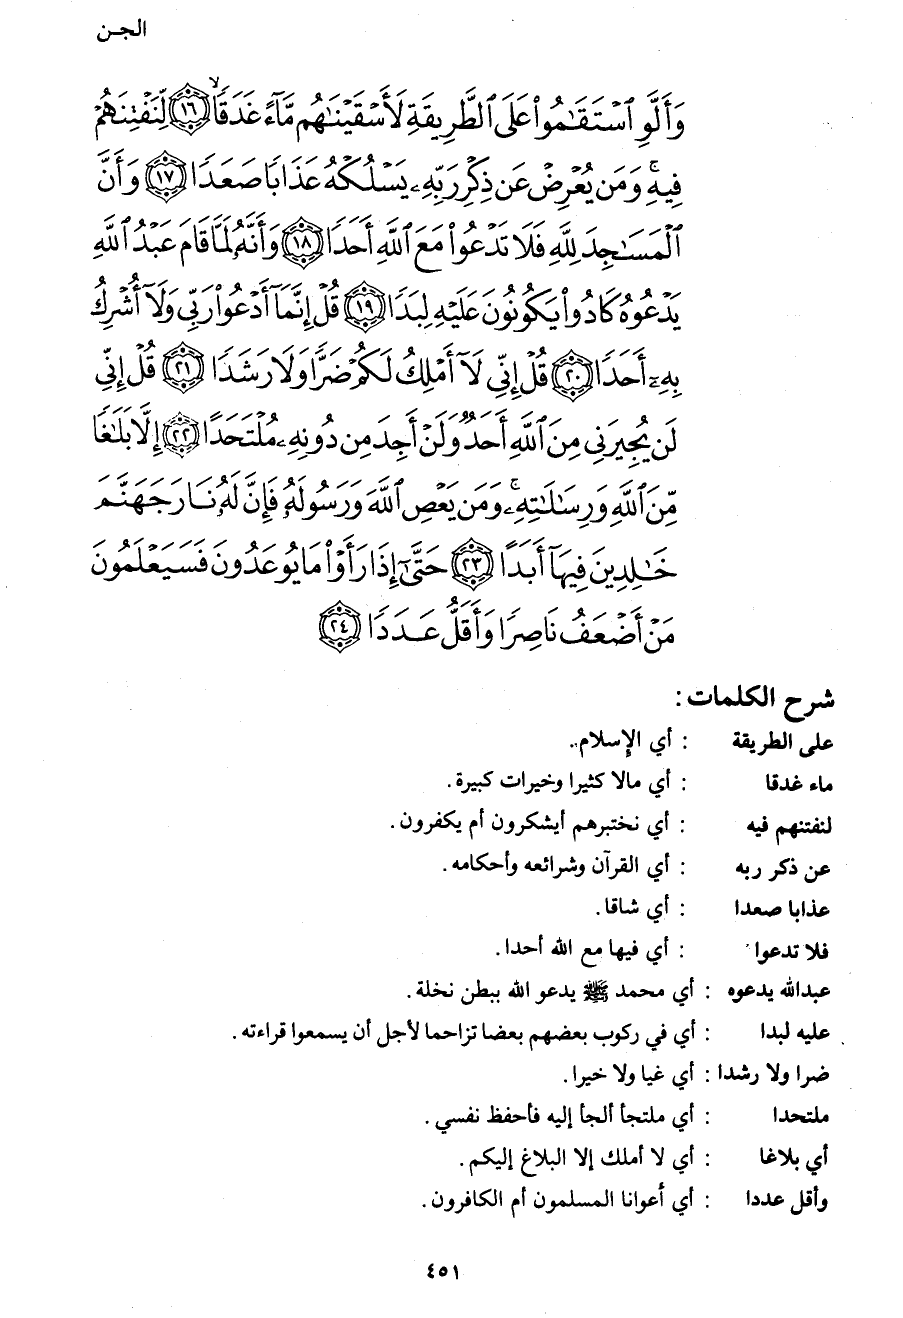 الجـن
وَأَلَّوِ ٱسْتَقَٰمُوا۟ عَلَى ٱلطَّرِيقَةِ لَأَسْقَيْنَٰهُم مَّآءً غَدَقًا ۝١٦ لِّنَفْتِنَهُمْ
فِيهِ ۚ وَمَن يُعْرِضْ عَن ذِكْرِ رَبِّهِۦ يَسْلُكْهُ عَذَابًا صَعَدًا ۝١٧ وَأَنَّ
ٱلْمَسَٰجِدَ لِلَّهِ فَلَا تَدْعُوا۟ مَعَ ٱللَّهِ أَحَدًا ۝١٨ وَأَنَّهُۥ لَمَّا قَامَ عَبْدُ ٱللَّهِ
يَدْعُوهُ كَادُوا۟ يَكُونُونَ عَلَيْهِ لِبَدًا ۝١٩ قُلْ إِنَّمَآ أَدْعُوا۟ رَبِّى وَلَآ أُشْرِكُ
بِهِۦٓ أَحَدًا ۝٢٠ قُلْ إِنِّى لَآ أَمْلِكُ لَكُمْ ضَرًّا وَلَا رَشَدًا ۝٢١ قُلْ إِنِّى
لَن يُجِيرَنِى مِنَ ٱللَّهِ أَحَدٌ وَلَنْ أَجِدَ مِن دُونِهِۦ مُلْتَحَدًا ۝٢٢ إِلَّا بَلَٰغًا
مِّنَ ٱللَّهِ وَرِسَٰلَٰتِهِۦ ۚ وَمَن يَعْصِ ٱللَّهَ وَرَسُولَهُۥ فَإِنَّ لَهُۥ نَارَ جَهَنَّمَ
خَٰلِدِينَ فِيهَآ أَبَدًا ۝٢٣ حَتَّىٰٓ إِذَا رَأَوْا۟ مَا يُوعَدُونَ فَسَيَعْلَمُونَ
مَنْ أَضْعَفُ نَاصِرًا وَأَقَلُّ عَدَدًا ۝٢٤
شرح الكلمات :
على الطريقة : أي الإسلام..
ماء غدقا : أي مالا كثيرا وخيرات كبيرة .
لنفتنهم فيه : أي نختبرهم أيشكرون أم يكفرون .
عن ذكر ربه : أي القرآن وشرائعه وأحكامه .
عذابا صعدا : أي شاقا .
فلا تدعوا : أي فيها مع الله أحدا .
عبدالله يدعوه : أي محمد ﷺ يدعو الله ببطن نخلة .
عليه لبدا : أي في ركوب بعضهم بعضا تزاحما لأجل أن يسمعوا قراءته .
ضرا ولا رشدا : أي غيا ولا خيرا .
ملتحدا : أي ملتجأ ألجأ إليه فأحفظ نفسي .
أي بلاغا : أي لا أملك إلا البلاغ إليكم .
وأقل عددا : أي أعوانا المسلمون أم الكافرون .
٤٥١